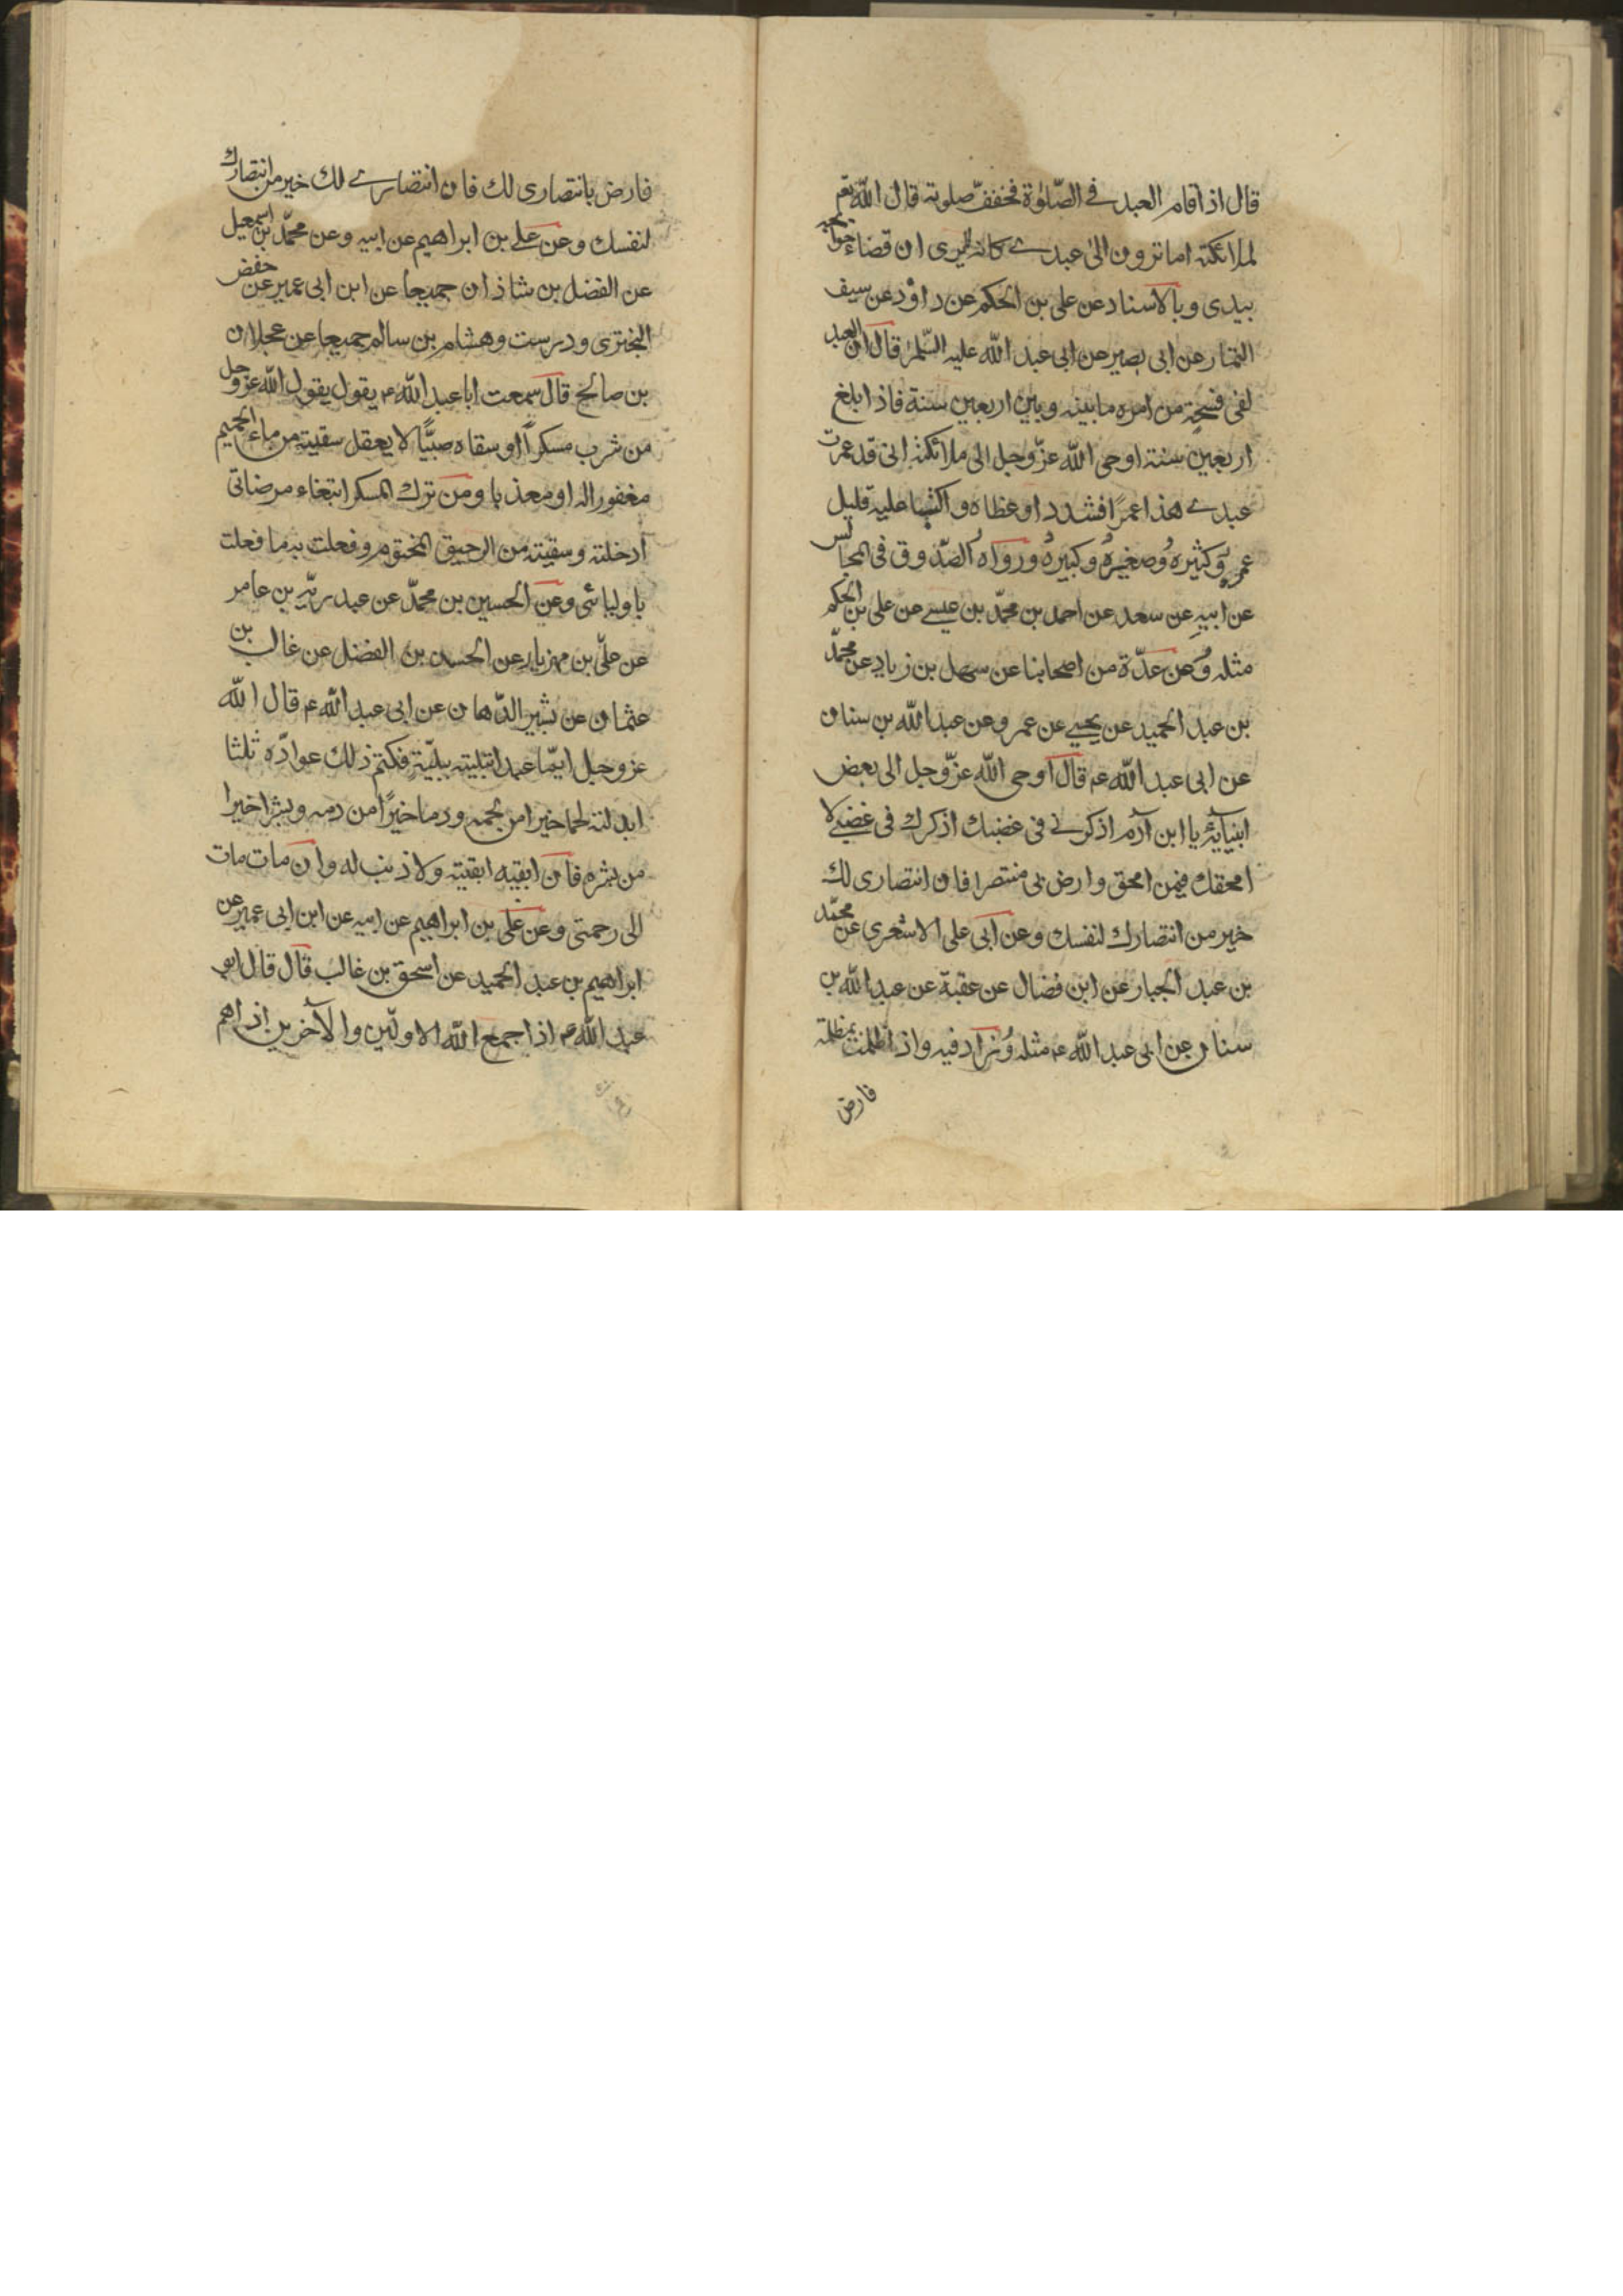 قال اذا قام العبد في الصّلوة فخفف صلوته قال الله تعم
لملائكته اما ترون الى عبدي كانه يرى ان قضاء حوائجه
بيدى و بالاسناد عن على بن الحكم عن داود عن سيف
التمار عن ابى بصير عن ابى عبد الله عليه السّلم قال ان العبد
لفى فسحة من امره ما بينه و بين اربعين سنة فاذا بلغ
اربعين سنة اوحى الله عزّ وجل الى ملائكته انى قد عمرت
عبدي هذا عمرًا فشددا و غلظاه و اكتبا عليه قليل
عمره و كثيره و صغيره و كبيره و رواه الصّدوق فى المجالس
عن ابيه عن سعد عن احمد بن محمّد بن عيسى عن على بن الحكم
مثله و عن عدّة من اصحابنا عن سهل بن زياد عن محمّد
بن عبد الحميد عن يحيى عن عمرو عن عبد الله بن سنان
عن ابى عبد الله ع قال اوحى الله عزّ وجل الى بعض
انبيائه يا ابن آدم اذكرنى فى غضبك اذكرك فى غضبى لا
امحقك فيمن امحق و ارض بى منتصرا فان انتصارى لك
خير من انتصارك لنفسك و عن ابى على الاشعرى عن محمّد
بن عبد الجبار عن ابن فضال عن عقبة عن عبد الله بن
سنان عن ابى عبد الله ع مثله و زاد فيه و اذا ظلمت بمظلمة
فارض
فارض بانتصارى لك فان انتصاري لك خير من انتصارك
لنفسك و عن علي بن ابراهيم عن ابيه و عن محمّد بن اسمعيل
عن الفضل بن شاذان جميعا عن ابن ابى عمير عن حفض
البخترى و درست و هشام بن سالم جميعا عن عجلان
بن صالح قال سمعت ابا عبد الله ع يقول يقول الله عز و جل
من شرب مسكراً او سقاه صبيًّا لا يعقل سقيته من ماء الحميم
مغفورا له او معذبا و من ترك المسكر ابتغاء مرضاتى
ادخلته و سقيته من الرحيق المختوم و فعلت به ما فعلت
باوليائى و عن الحسين بن محمّد عن عبد ربّه بن عامر
عن علىّ بن مهزيار عن الحسن بن الفضل عن غالب بن
عثمان عن بشير الدّهان عن ابى عبد الله ع قال الله
عز و جل ايّما عبد ابتليته ببليّة فكتم ذلك عوّاده ثلثا
ابدلته لحما خيرا من لحمه و دما خيرًا من دمه و بشرا خيرا
من بشره فان ابقيه ابقيته و لا ذنب له و ان مات مات
الى رحمتى و عن على بن ابراهيم عن ابيه عن ابن ابى عمير عن
ابراهيم بن عبد الحميد عن اسحق بن غالب قال قال ابو
عبد الله ع اذا جمع الله الاولين و الآخرين اذا هم